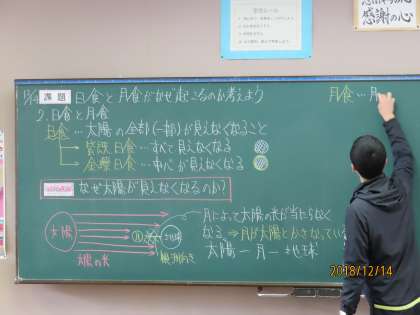 感謝の心
12/14 課題 日食と月食がなぜ起こるのか考えよう
2. 日食と月食
日食…太陽の全部(一部)が見えなくなること
皆既日食…すべて見えなくなる
金環日食…中心が見えなくなる
なぜ太陽が見えなくなるのか?
太陽
月
地球
太陽の光
月によって太陽の光が当たらなく
なる ⇒月が太陽とかさなっている
太陽ー月ー地球
月食…月
2018/12/14